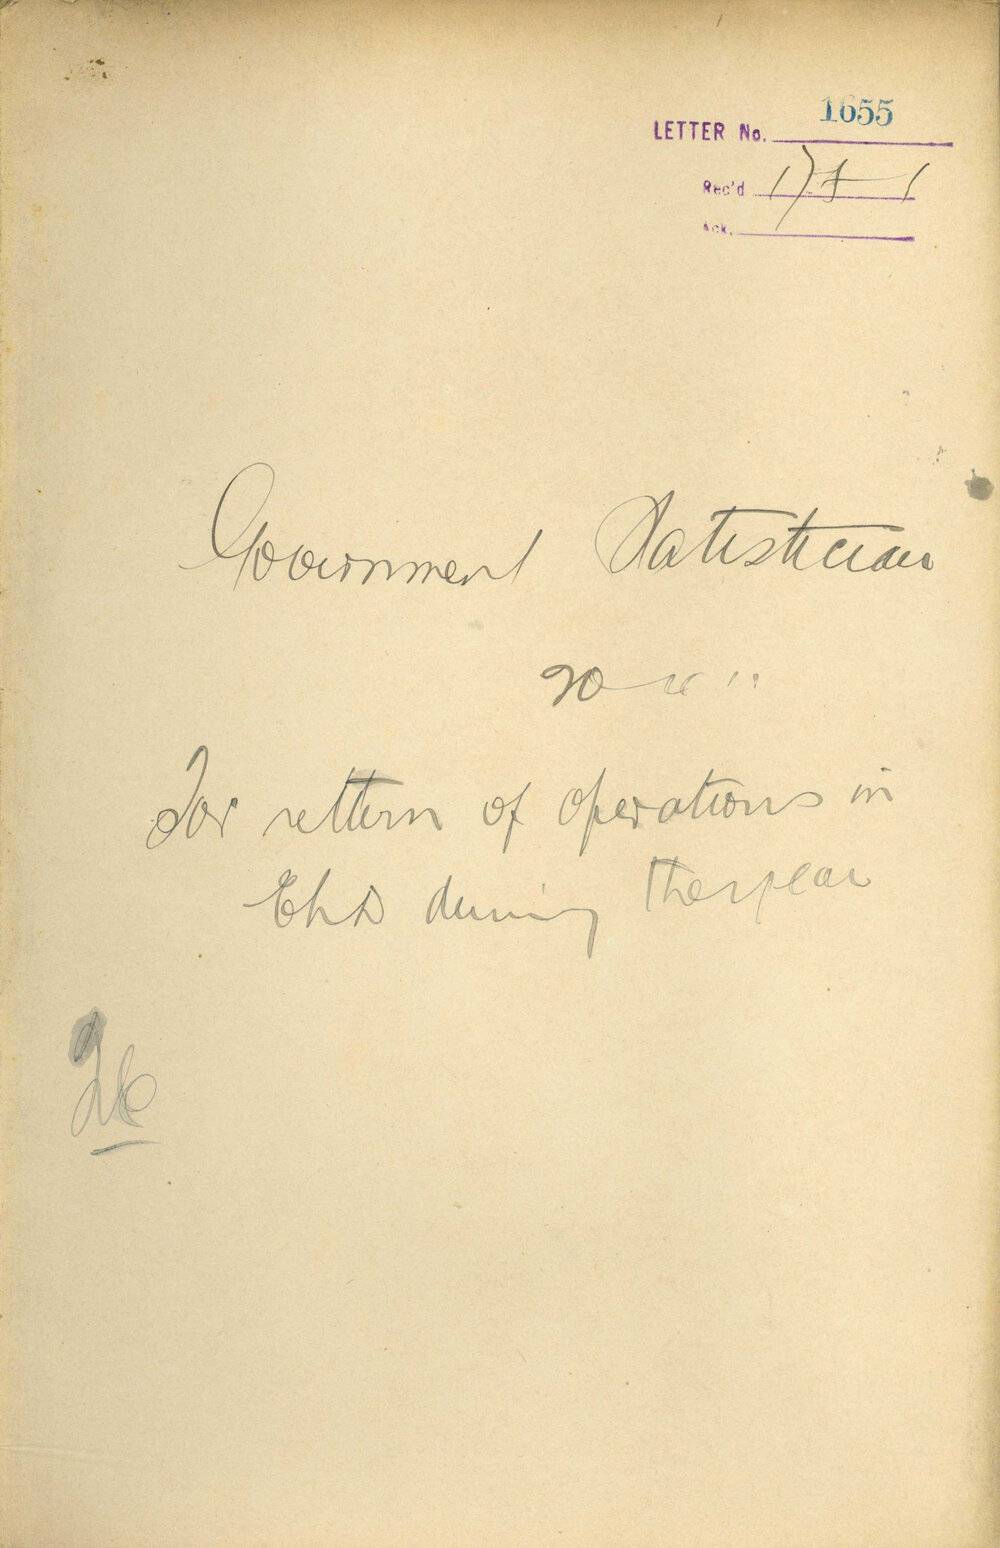 LETTER No. 1655
Rec'd
Ack.
Government Statistician
For return of operations in
during the year